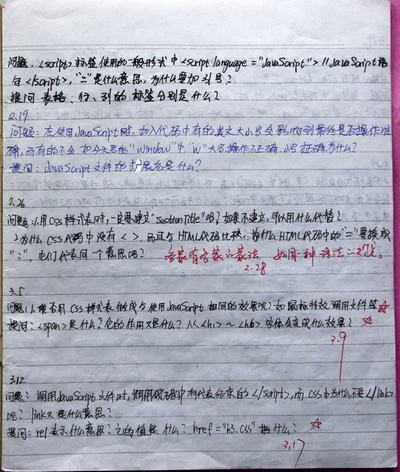 问题：<script>标签使用的一般形式中<script language="JavaScript">//JavaScript语
句</script>，"="是什么意思，为什么要加引号？
提问：表格、行、列的标签分别是什么？
2.19
问题：在使用JavaScript时，加入代码中有的英文大小写会影响到最终是否操作准
确，而有的不会，如大写的"Window"中"W"大写操作不正确，小写正确，为什么？
提问：JavaScript文件的扩展名是什么？
2.26
问题：1.用CSS样式表时，一定要建立"SectionTitle"吗？如果不建立，可以用什么代替？
2.为什么CSS代码中没有< >，而且与HTML代码比较，为什么HTML代码中的"="要换成
":"，它们代表同一个意思吗？
各家有各家的 法，如同一种语法
2.28
3.5
问题：1.能否用CSS样式表做成与使用JavaScript相同的效果呢？如鼠标特效，调用文件等
提问：<span>是什么？它的作用又是什么？从<h1>~<h6>字体会变成什么效果？
3.9
3.12
问题：调用JavaScript文件时，调用代码中有代表结束的</script>，而CSS中为什么不要</link>
呢？link又是什么意思？
提问：rel表示什么意思？它的值是什么？href="h3.css"指什么？
3.17